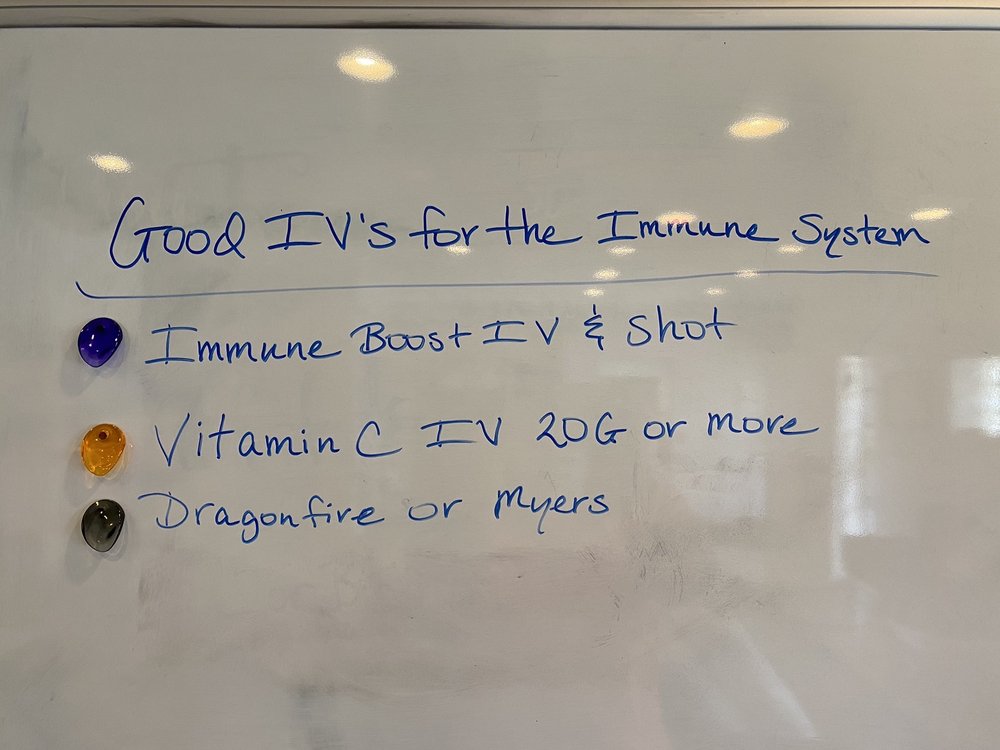 Good IV's for the Immune System
Immune Boost IV & Shot
Vitamin C IV 20G or more
Dragonfire or Myers